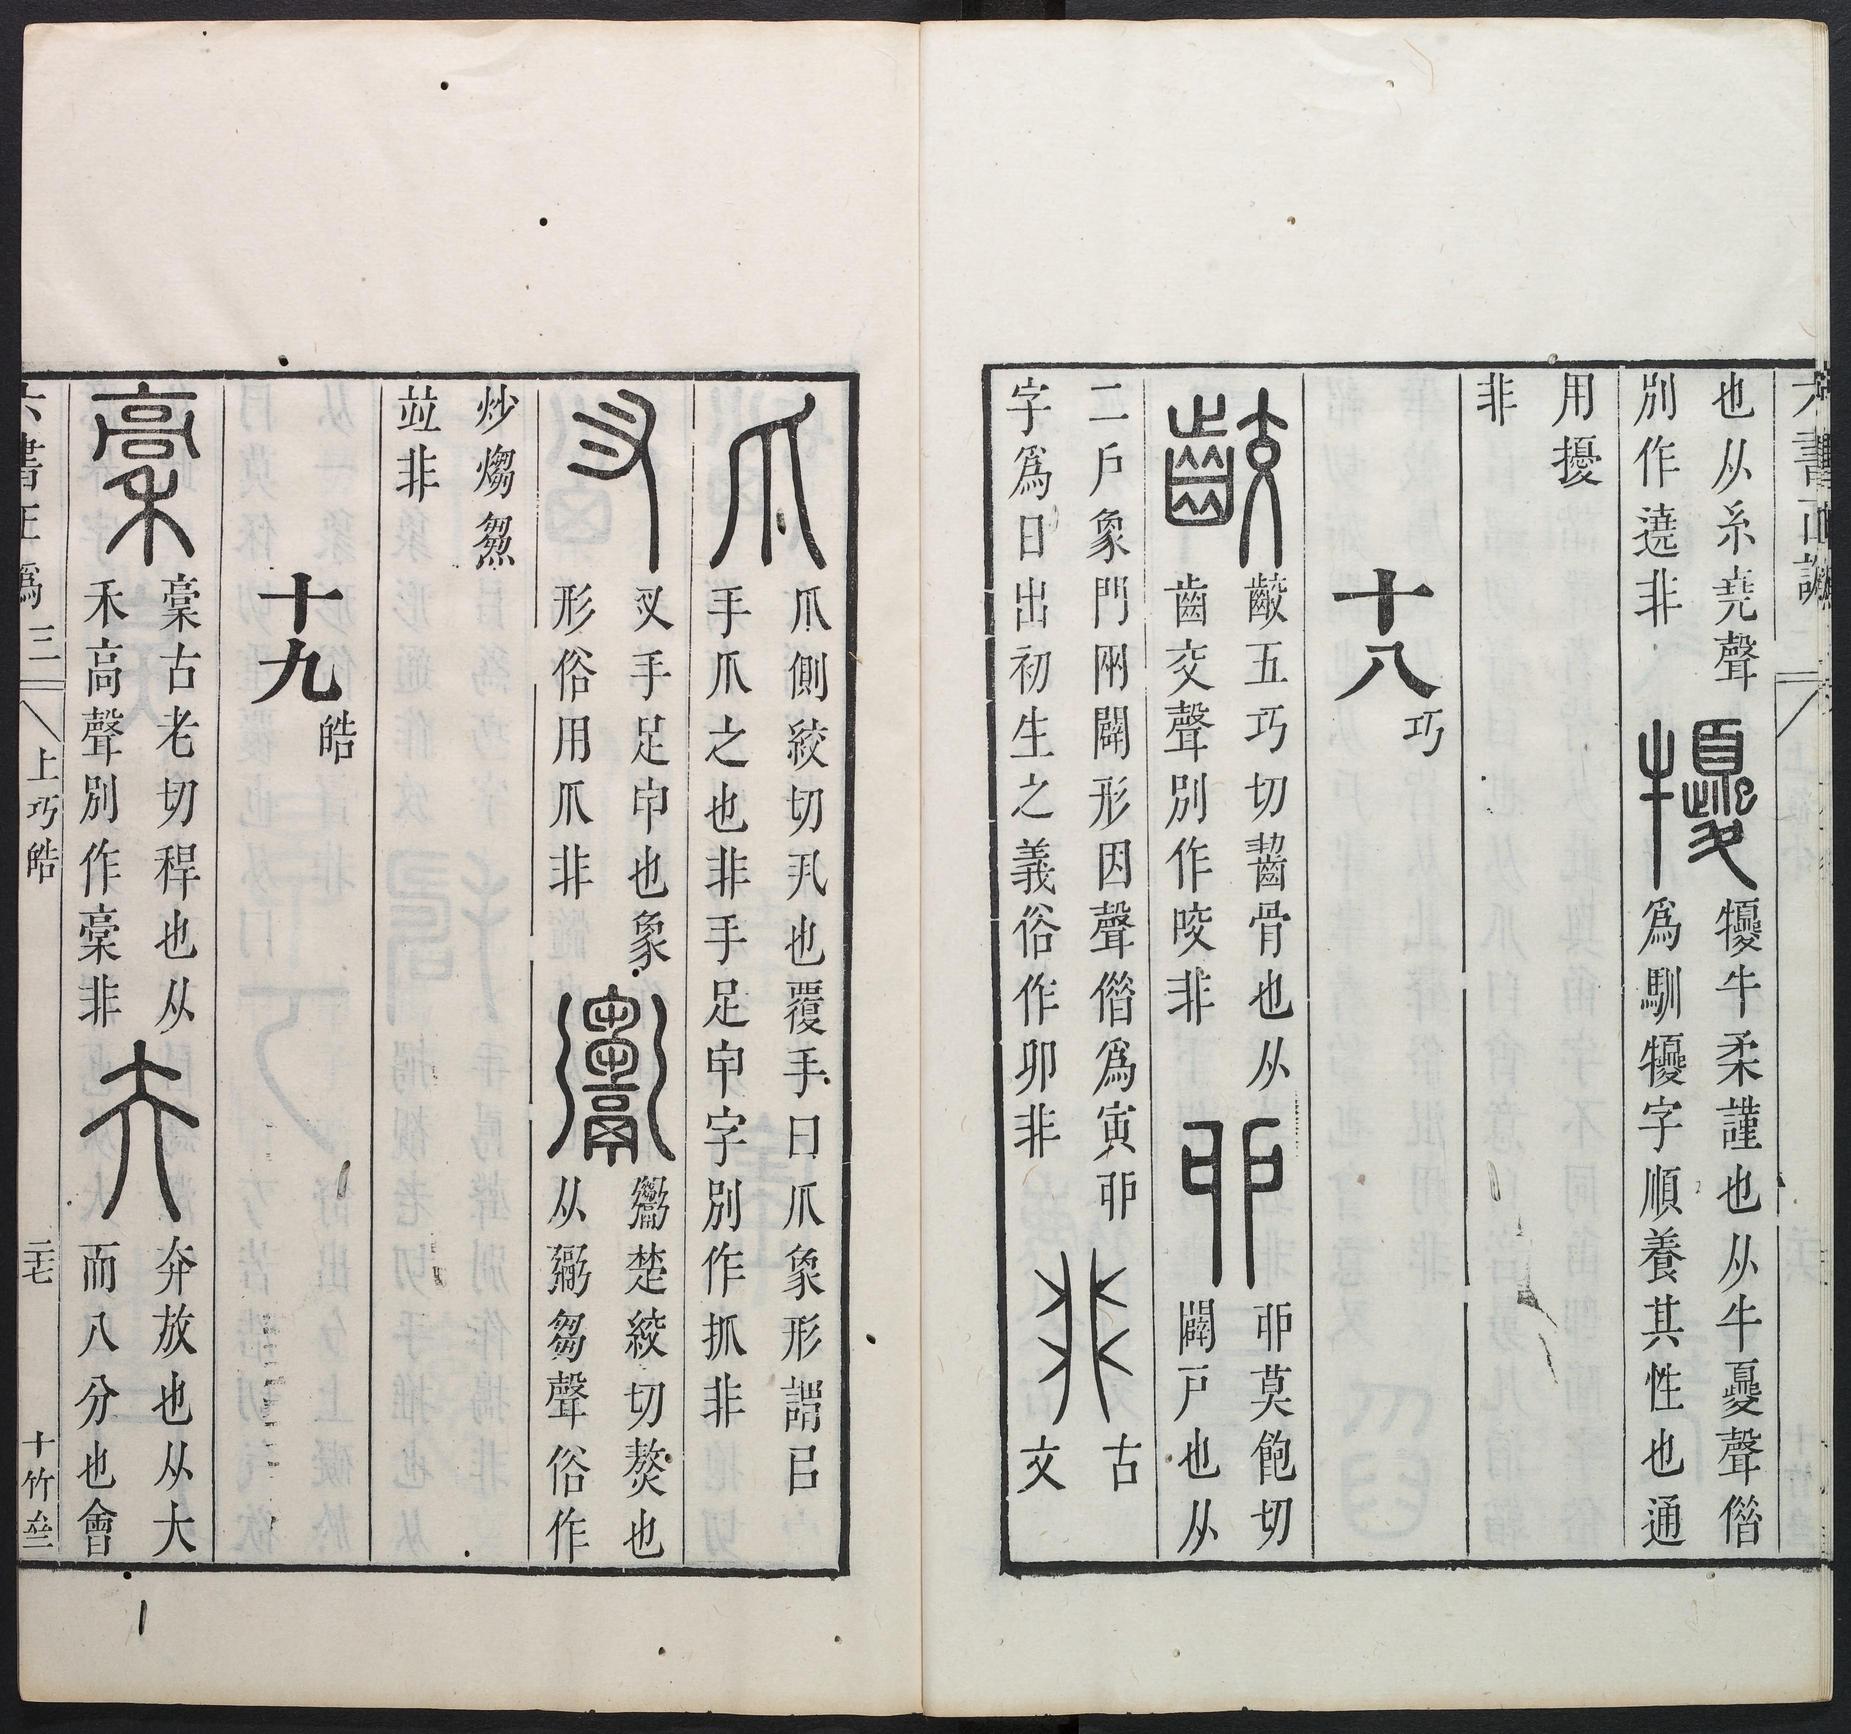 六書正譌
也从糸堯聲
別作遶非
犪牛柔謹也从牛夒聲借
爲馴犪字順養其性也通
用擾
非
十八巧
齩五巧切齧骨也从
齒交聲別作咬非
戼莫飽切
闢戶也从
二戶象門兩闢形因聲借爲寅戼
字爲日出初生之義俗作卯非
古
文
爪爪側絞切丮也覆手曰爪象形謂㠯
手爪之也非手足叉字別作抓非
叉叉手足甲也象
形俗用爪非
楚絞切熬也
从䰜芻聲俗作
炒煼㷅
竝非
十九皓
稾稾古老切稈也从
禾高聲別作稾非
夰夰放也也从大
而八分也會
六書正譌三上巧皓二十七十竹齋